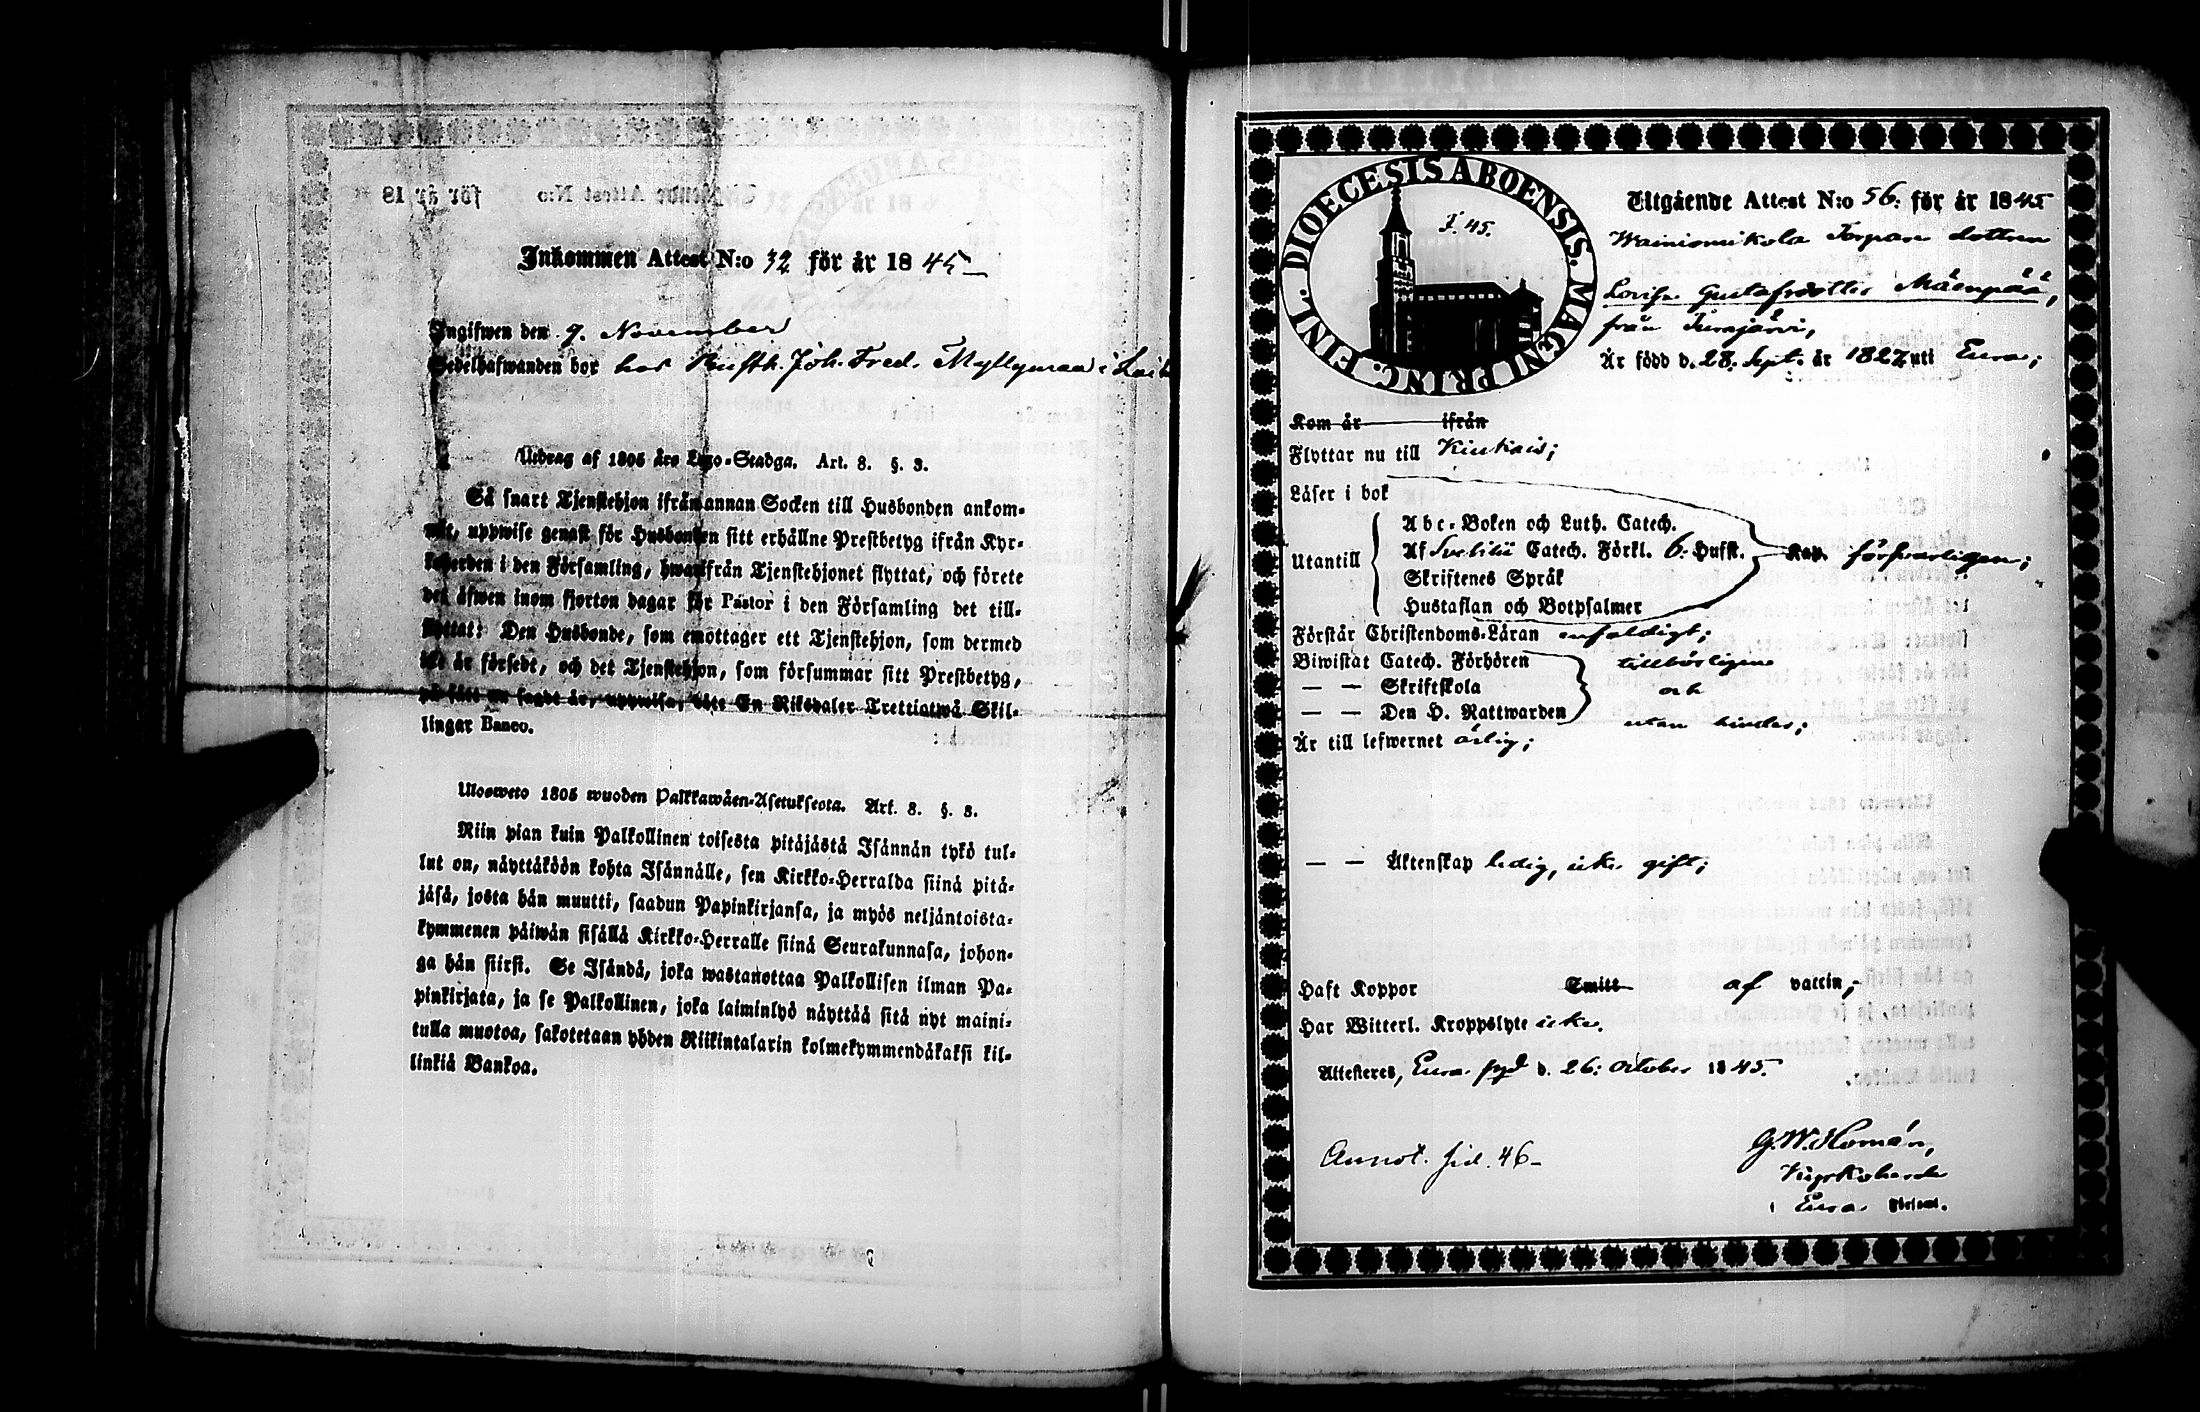 Inkommen Attest N:o 32 för år 1845
Ingifwen den 9. November
Sedelhafwanden bor hos Rusth. Joh. Fred. Myllymaa i
Utdrag af 1805 års Lego-Stadga. Art. 8. §. 3.
Så snart Tjenstehjon ifrån annan Socken till Husbonden ankom-
mit, uppwise genast för Husbonden sitt erhållne Prestbetyg ifrån Kyr-
koherden i den Församling, hwarifrån Tjenstehjonet flyttat, och förete
det äfwen inom fjorton dagar för Pastor i den Församling det till-
flyttat: Den Husbonde, som emottager ett Tjenstehjon, som dermed
icke är försedt, och det Tjenstehjon, som försummar sitt Prestbetyg,
på sätt nu sagdt är, uppwisa, böte En Riksdaler Trettiotwå Skil-
lingar Banco.
Ulosweto 1805 wuoden Palkkawäen-Asetuksesta. Art. 8. §. 3.
Niin pian kuin Palkollinen toisesta pitäjästä Isännän tykö tul-
lut on, näyttäköön kohta Isännälle, sen Kirkko-Herralda siinä pitä-
jäsä, josta hän muutti, saadun Papinkirjansa, ja myös neljäntoista-
kymmenen päiwän sisällä Kirkko-Herralle siinä Seurakunnasa, johon-
ga hän siirsi. Se Isändä, joka wastanottaa Palkollisen ilman Pa-
pinkirjata, ja se Palkollinen, joka laiminlyö näyttää sitä nyt maini-
tulla muotoa, sakotetaan yhden Riikintalarin kolmekymmendäkaksi kil-
linkiä Bankoa.
DIOECESIS ABOENSIS. MAGNI PRINC. FINL.
I. 45.
Utgående Attest N:o 56: för år 1845
Wainiomikola Torpare dottren
Lovisa Gustafsdotter Mäenpää,
från Turajärvi,
Är född d. 28. Sept: år 1827 uti Eura;
Kom år ifrån
Flyttar nu till Kiukais;
Läser i bok
Utantill
Abc-Boken och Luth. Catech.
Af Svebilii Catech. Förkl. 6: Hufst. Kap. försvarligen;
Skriftenes Språk
Hustaflan och Botpsalmer
Förstår Christendoms-Läran enfaldigt;
Biwistat Catech. Förhören tillbörligen
— — Skriftskola och
— — Den H. Nattwarden utan hinder;
Är till lefwernet ärlig;
— — Äktenskap ledig, icke gift;
Haft Koppor Smitt af vaccin;
Har Witterl. Kroppslyte icke.
Attesteres, Eura pgd d. 26: October 1845.
G. W. Homén,
Kyrkoherde
i Eura Församl.
Annot. sid. 46